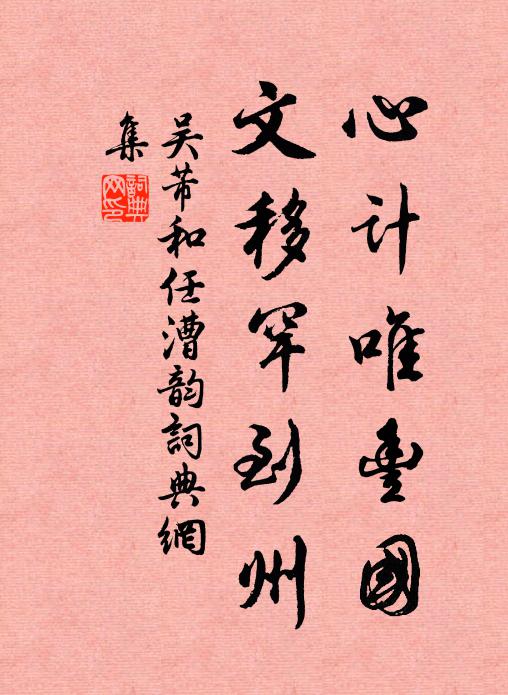 心计唯豐國
文移罕到州
吴芾和任漕韵詞典網
集
詞典
网印